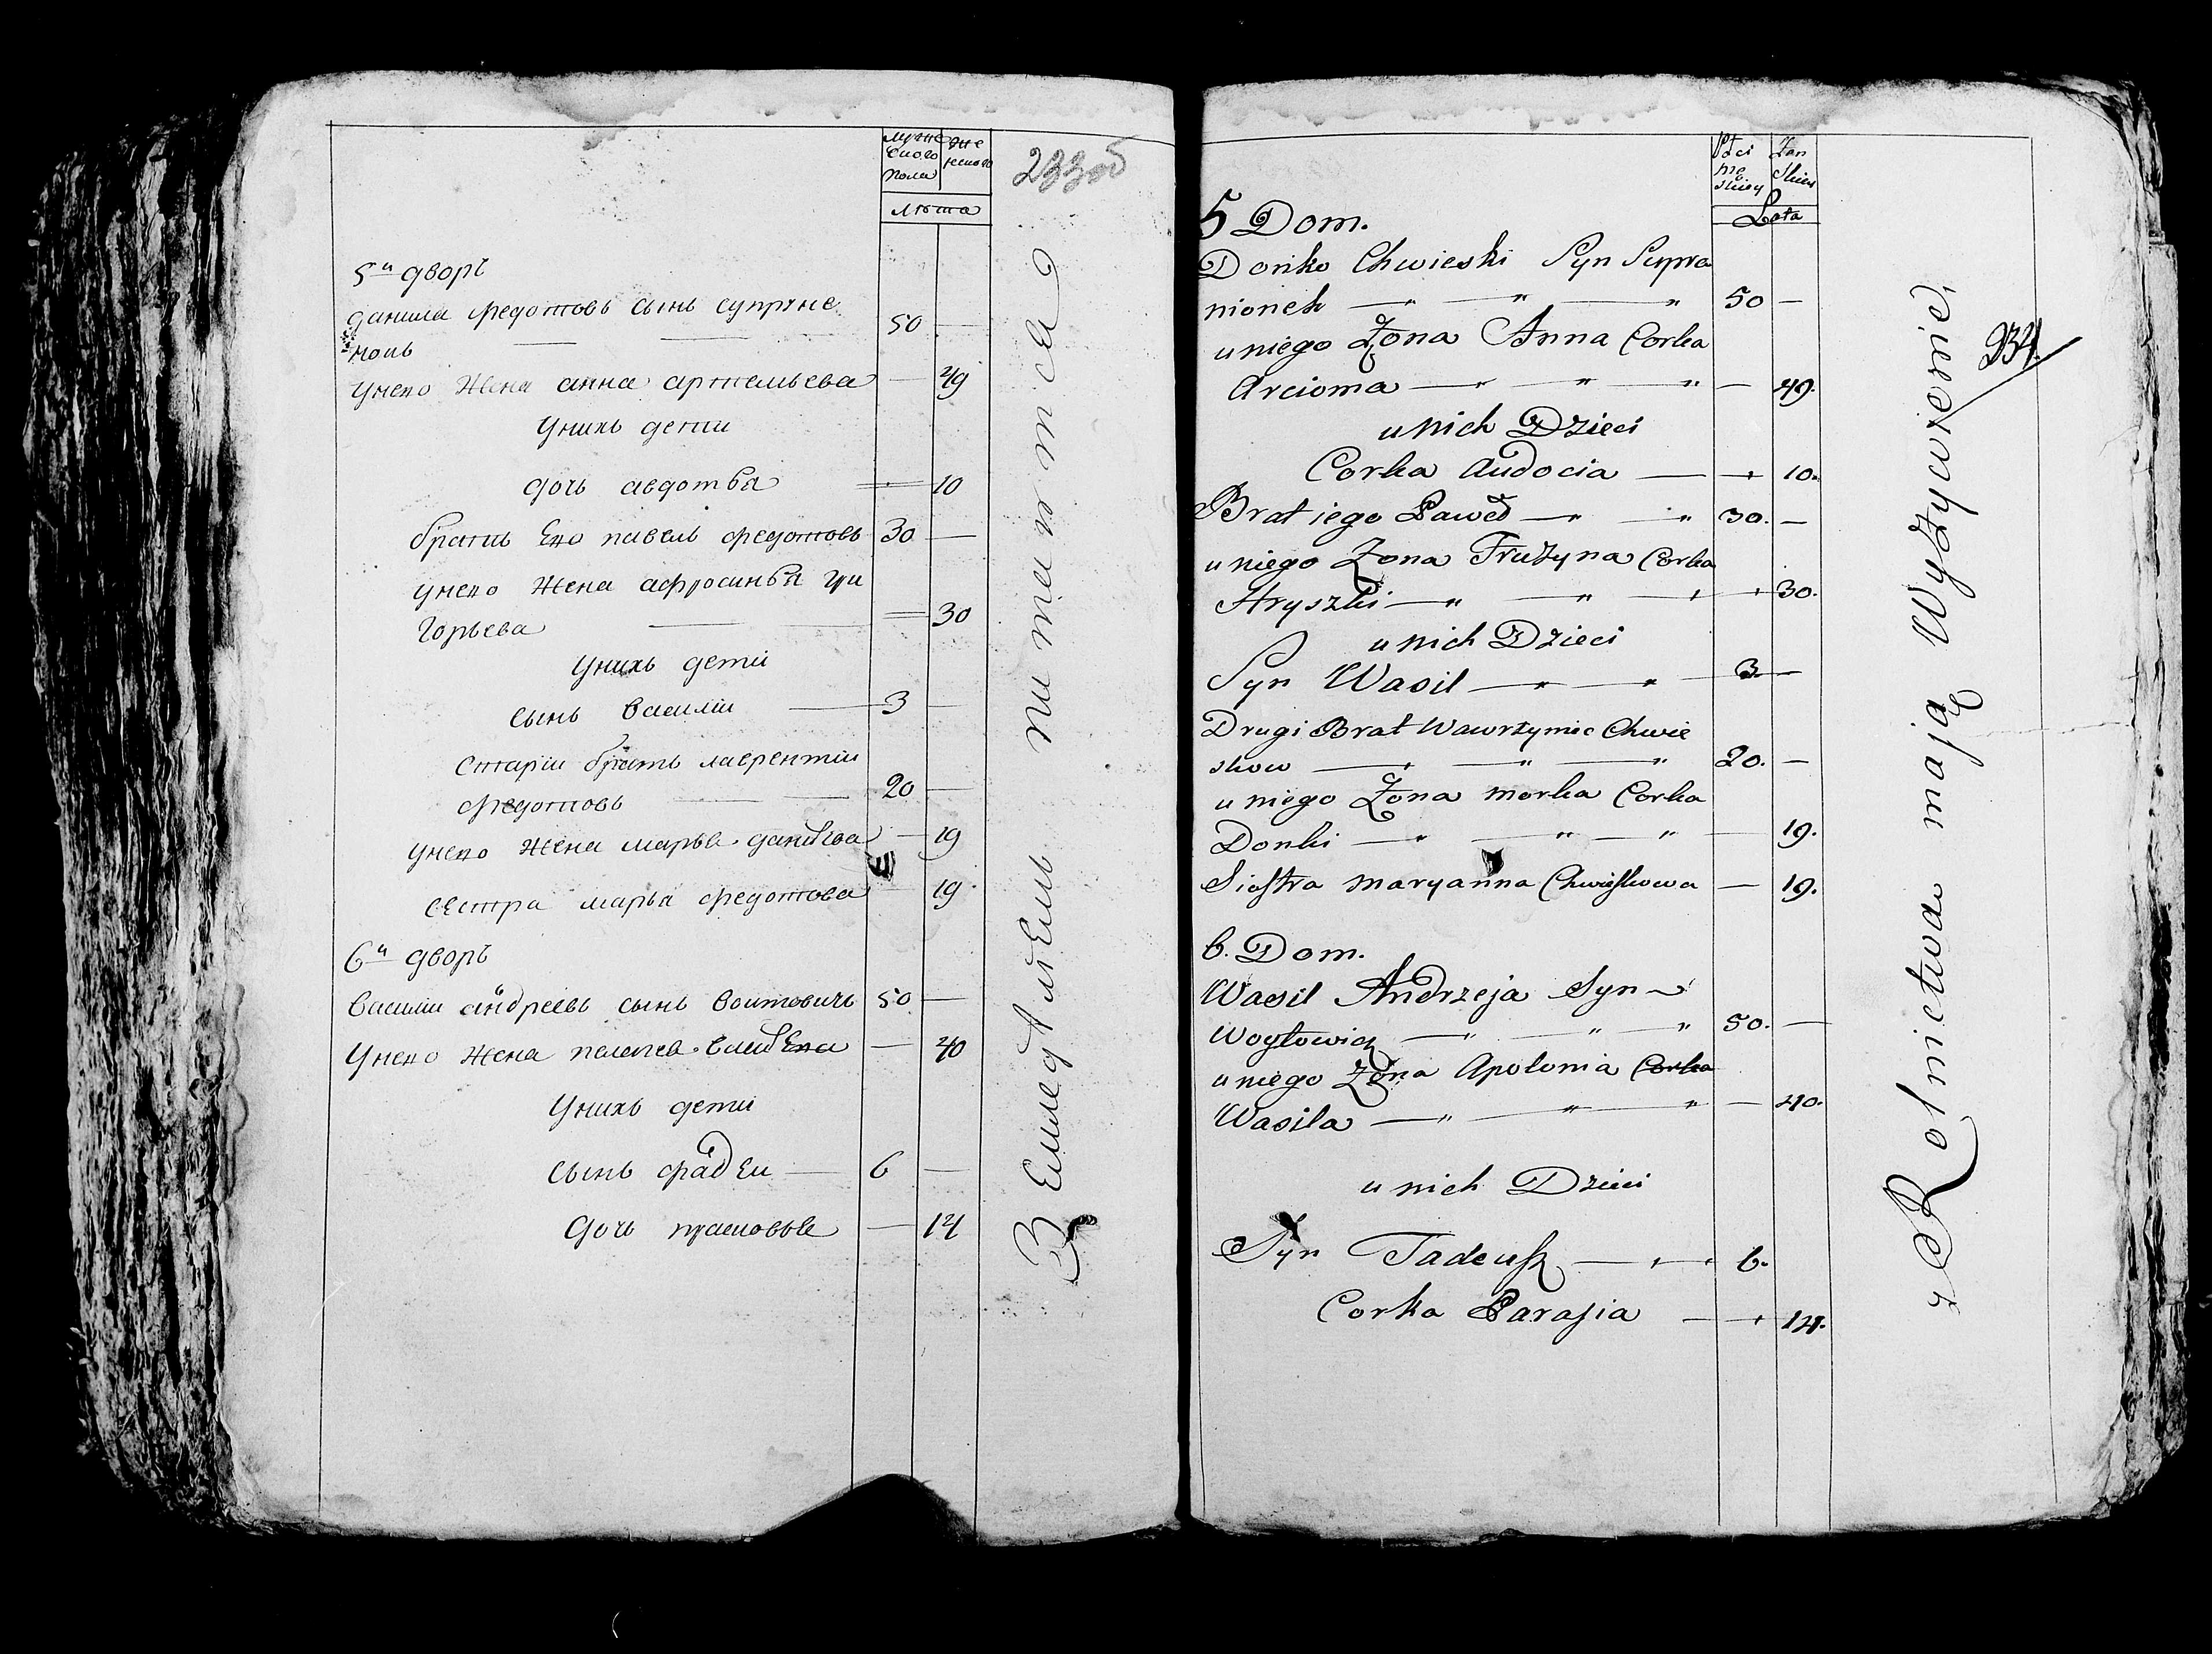 мужескаго пола
женскаго
лѣта
233об
5й дворъ
данила федотовъ сынъ супруне
нокъ
50
унего жена анна артемьева 49
унихъ дети
дочь авдотья 10
братъ Его павелъ федотовъ 30
унего жена афросинья гри
горьева 30
унихъ дети
сынъ василіи 3
братъ лаврентіи
федотовъ 20
унего жена марья 19
сестра марья федотова 19
6й дворъ
василіи андреевъ сынъ воитовичъ 50
унего жена 40
унихъ дети
сынъ фадеи 6
дочь прасковья 14
Землед
питаитса
Płci męskiey
Zenskiey
Lata
5 Dom.
Dońko Chwieski Syn Supra
nionek 50 —
u niego Żona Anna Corka
Arcioma — 49.
u nich Dzieci
Corka Audocia 10.
Brat iego Paweł 30. —
u niego Żona Frużyna Corka
Hryszki 30.
u nich Dzieci
Syn Wasil 3. —
Drugi Brat Wawrzyniec Chwie
skow 20. —
u niego Żona Morka Corka
Donki — 19.
Siostra Maryanna Chwieskowa — 19.
6. Dom.
Wasil Andrzeja Syn
Woytowicz 50. —
u niego Żona Apolonia Corka
Wasila — 40.
u nich Dzieci
Syn Tadeusz 6.
Corka Parasia 14.
z Rolnictwa mają Wyżywienie,
234.